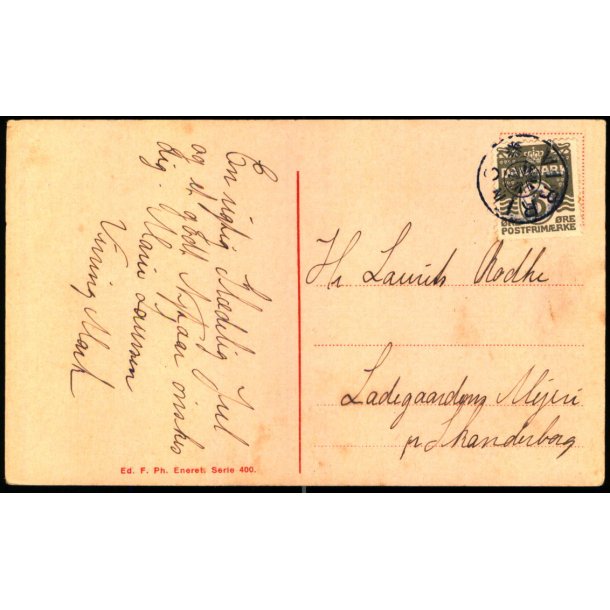 En rigtig Glædelig Jul
og et godt Nytaar ønskes
dig. Marie Laursen
Virring Mark
DANMARK
ØRE
POSTFRIMÆRKE
VIRRING
Hr Laurits Rodthe
Ladegaardens Mejeri
pr Skanderborg
Ed. F. Ph. Eneret. Serie 400.